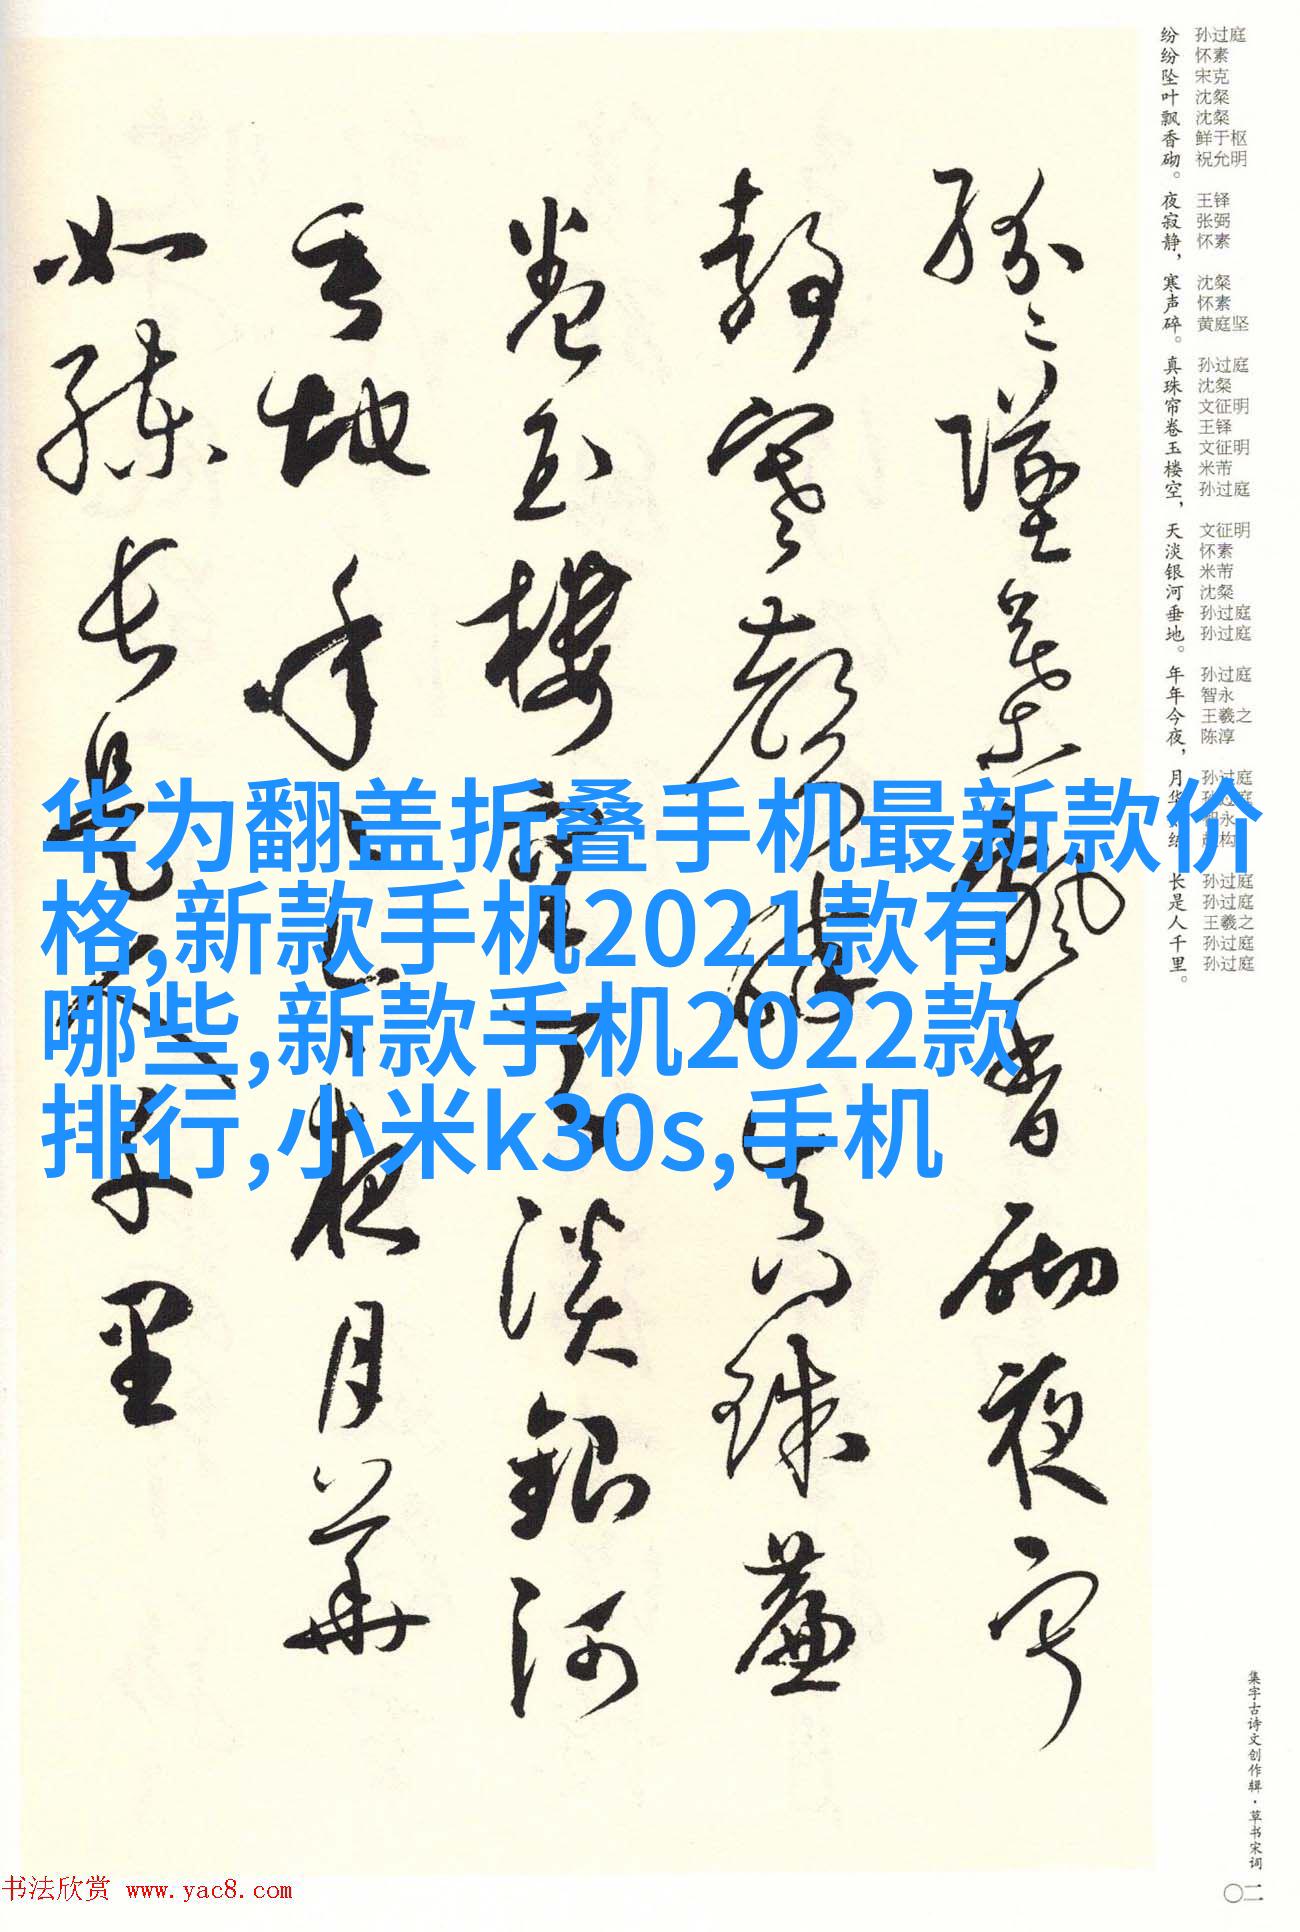 华为翻盖折叠手机最新款价
格,新款手机2021款有
哪些,新款手机2022款
排行,小米k30s,手机
纷纷坠叶飘香砌。夜寂静，寒声碎。真珠帘卷玉楼空，天淡银河垂地。年年今夜，月华 长是人千里。
孙过庭 怀素 宋克 沈粲 沈粲 鲜于枢 祝允明 王铎 张弼 怀素 沈粲 怀素 黄庭坚 孙过庭 沈粲 文征明 王铎 文征明 米芾 孙过庭 文征明 怀素 米芾 沈粲 孙过庭 孙过庭 孙过庭 智永 王羲之 陈淳 孙过庭 孙过庭 孙过庭 王羲之 孙过庭 孙过庭
紛々墜葉飄香砌夜寂
靜寒聲碎真珠簾
卷玉樓空天淡銀河
垂地年々今夜月華
如練長是人千里
集字古诗文创作辑·草书宋词
〇二
书法欣赏 www.yac8.com